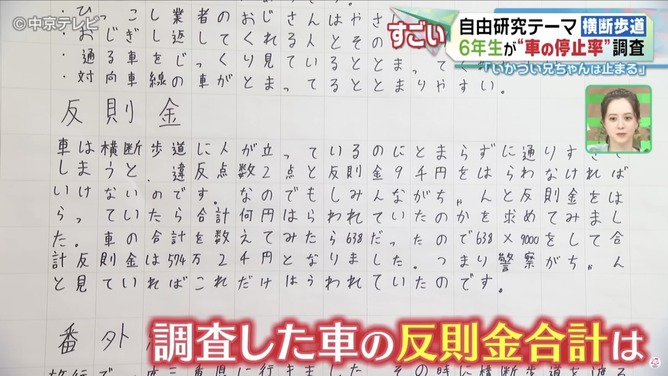 ©中京テレビ
すごい
自由研究テーマ 横断歩道
6年生が“車の停止率”調査
「いかつい兄ちゃんは止まる」
・ひっこし業者のおじさんはやさ
・おじぎし返してくれる人とその
・通る車をじっくり見ているとと
・対向車線の車がとまってるととまりやすい。
反則金
車は横断歩道に人が立っているのにとまらずに通りすぎて
しまうと、違反点数2点と反則金9千円をはらわなければ
いけないのです。なのでもしみんながちゃんと反則金をは
らっていたら合計何円はらわれていたのかを求めてみまし
た。車の合計を数えてみたら638だったので638×9000をして合
計反則金は574万2千円となりました。つまり警察がちゃん
と見ていればこれだけはらわれていたのです。
番外
調査した車の反則金合計は